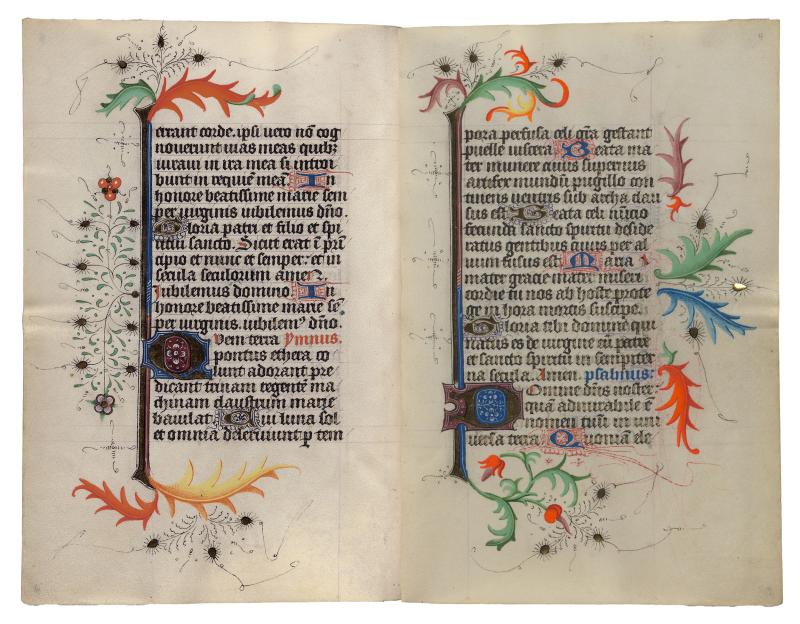 errant corde. ipsi vero nō cog
noverunt vias meas quibꝫ
iuravi in ira mea si introi
bunt in requiē meā In
honore beatissime marie sem
per virginis iubilemus dño.
Gloria patri et filio et spi
ritui sancto. Sicut erat ī prī
cipio et nunc et semper: et in
secula seculorum amen.
Iubilemus domino. In
honore beatissime marie sē
per virginis. iubilemꝰ dño.
Quem terra ymnus.
pontus ethera co
lunt adorant pre
dicant trinam regentē ma
chinam claustrum marie
baiulat Cui luna sol
et omnia deserviunt ꝑ tem
pora perfusa celi gr̄a gestant
puelle viscera Beata ma
ter munere cuius supernus
artifex mundū pugillo con
tinens ventris sub archa clau
sus est Beata celi nūcio
fecunda sancto spiritu deside
ratus gentibus cuius per al
vum fusus est Maria
mater gracie mater miseri
cordie tu nos ab hoste prote
ge in hora mortis suscipe.
Gloria tibi domine qui
natus es de virgine cū patre
et sancto spiritu in sempiter
na secula. Amen. psalmus:
Domine dn̄s noster
quā admirabile ē
nomen tuū in uni
versa terra Quoniā ele